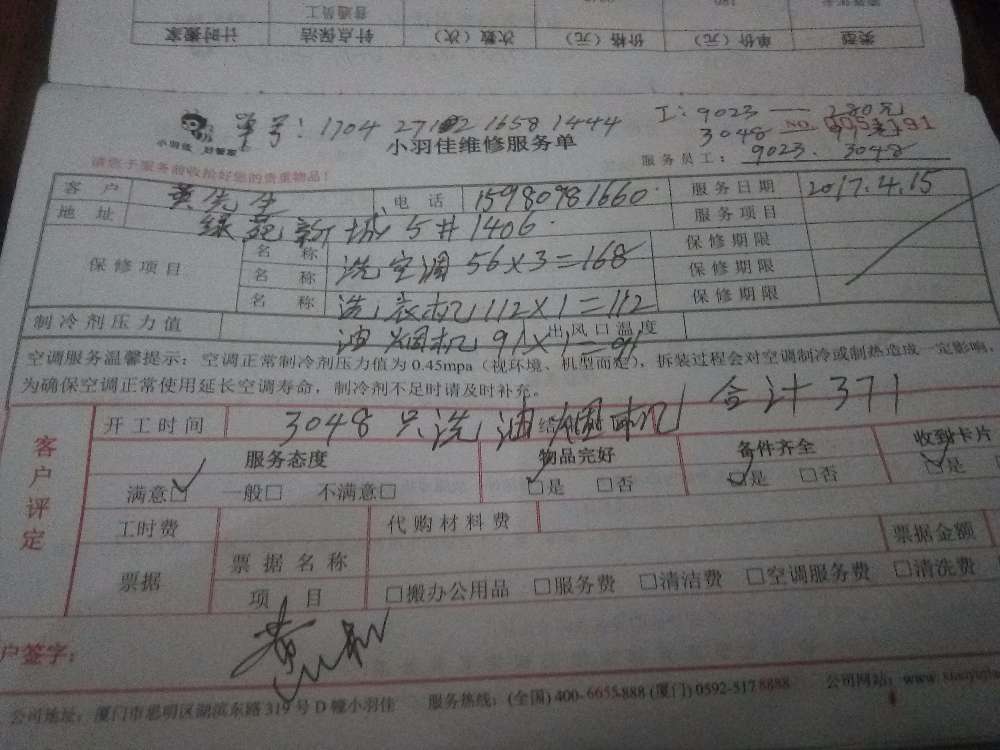 普通员工
计时搬家 钟点保洁 次数（次） 价格（元） 单价（元） 类型
单号：1704 27102 1658 1444
工：9023 — 280元
3048
NO.
小羽佳 好管家
小羽佳维修服务单
服务员工：9023. 3048
请您于服务前收拾好您的贵重物品！
客户 黄先生 电话 15980981660 服务日期 2017.4.15
地址 绿苑新城5#1406 服务项目
保修项目 名称 洗空调56×3=168 保修期限
名称 洗衣机112×1=112 保修期限
名称 油烟机91×1=91 保修期限
制冷剂压力值 出风口温度
空调服务温馨提示：空调正常制冷剂压力值为0.45mpa（视环境、机型而定），拆装过程会对空调制冷或制热造成一定影响，
为确保空调正常使用延长空调寿命，制冷剂不足时请及时补充。
合计371
客户评定
开工时间 3048只洗油烟机
服务态度 物品完好 备件齐全 收到卡片
满意□ 一般□ 不满意□ □是 □否 □是 □否 □是
工时费 代购材料费
票据 票据名称 票据金额
项目 □搬办公用品 □服务费 □清洁费 □空调服务费 □清洗费
户签字：
公司地址：厦门市思明区湖滨东路319号D幢小羽佳 服务热线：(全国) 400-6655-888 (厦门) 0592-5178888 公司网站：www.